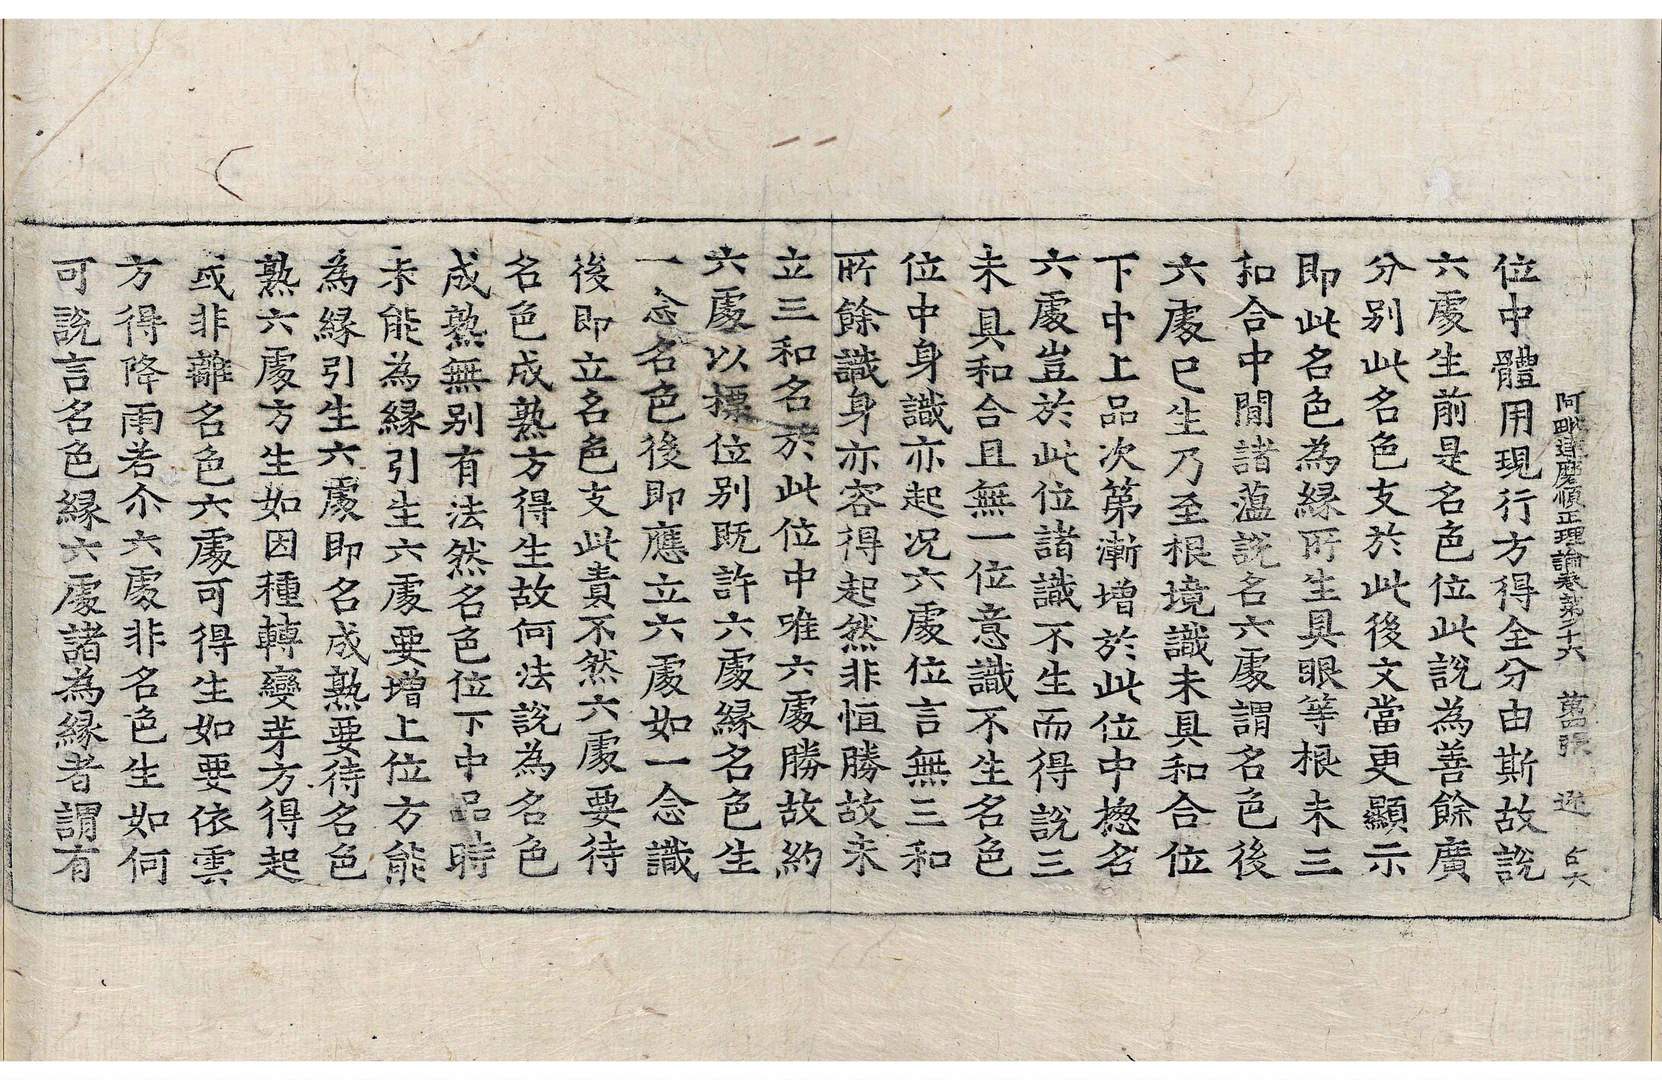 阿毗達磨順正理論卷第二十六　第四張　逆
位中體用現行方得全分由斯故說
六處生前是名色位此說為善餘廣
分別此名色支於此後文當更顯示
即此名色為緣所生具眼等根未三
和合中間諸蘊說名六處謂名色後
六處已生乃至根境識未具和合位
下中上品次第漸增於此位中摠名
六處豈於此位諸識不生而得說三
未具和合且無一位意識不生名色
位中身識亦起況六處位言無三和
所餘識身亦容得起然非恒勝故未
立三和名於此位中唯六處勝故約
六處以摽位別既許六處緣名色生
一念名色後即應立六處如一念識
後即立名色支此責不然六處要待
名色成熟方得生故何法說為名色
成熟無別有法然名色位下中品時
未能為緣引生六處要增上位方能
為緣引生六處即名成熟要待名色
熟六處方生如因種轉變芽方得起
或非離名色六處可得生如要依雲
方得降雨若尒六處非名色生如何
可說言名色緣六處諸為緣者謂有